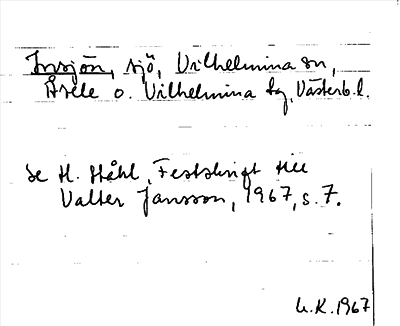 Insjön, sjö, Vilhelmina sn,
Åsele o. Vilhelmina tg, Västerb. l.
se H. Ståhl, Festskrift till
Valter Jansson, 1967, s. 7.
U.K. 1967